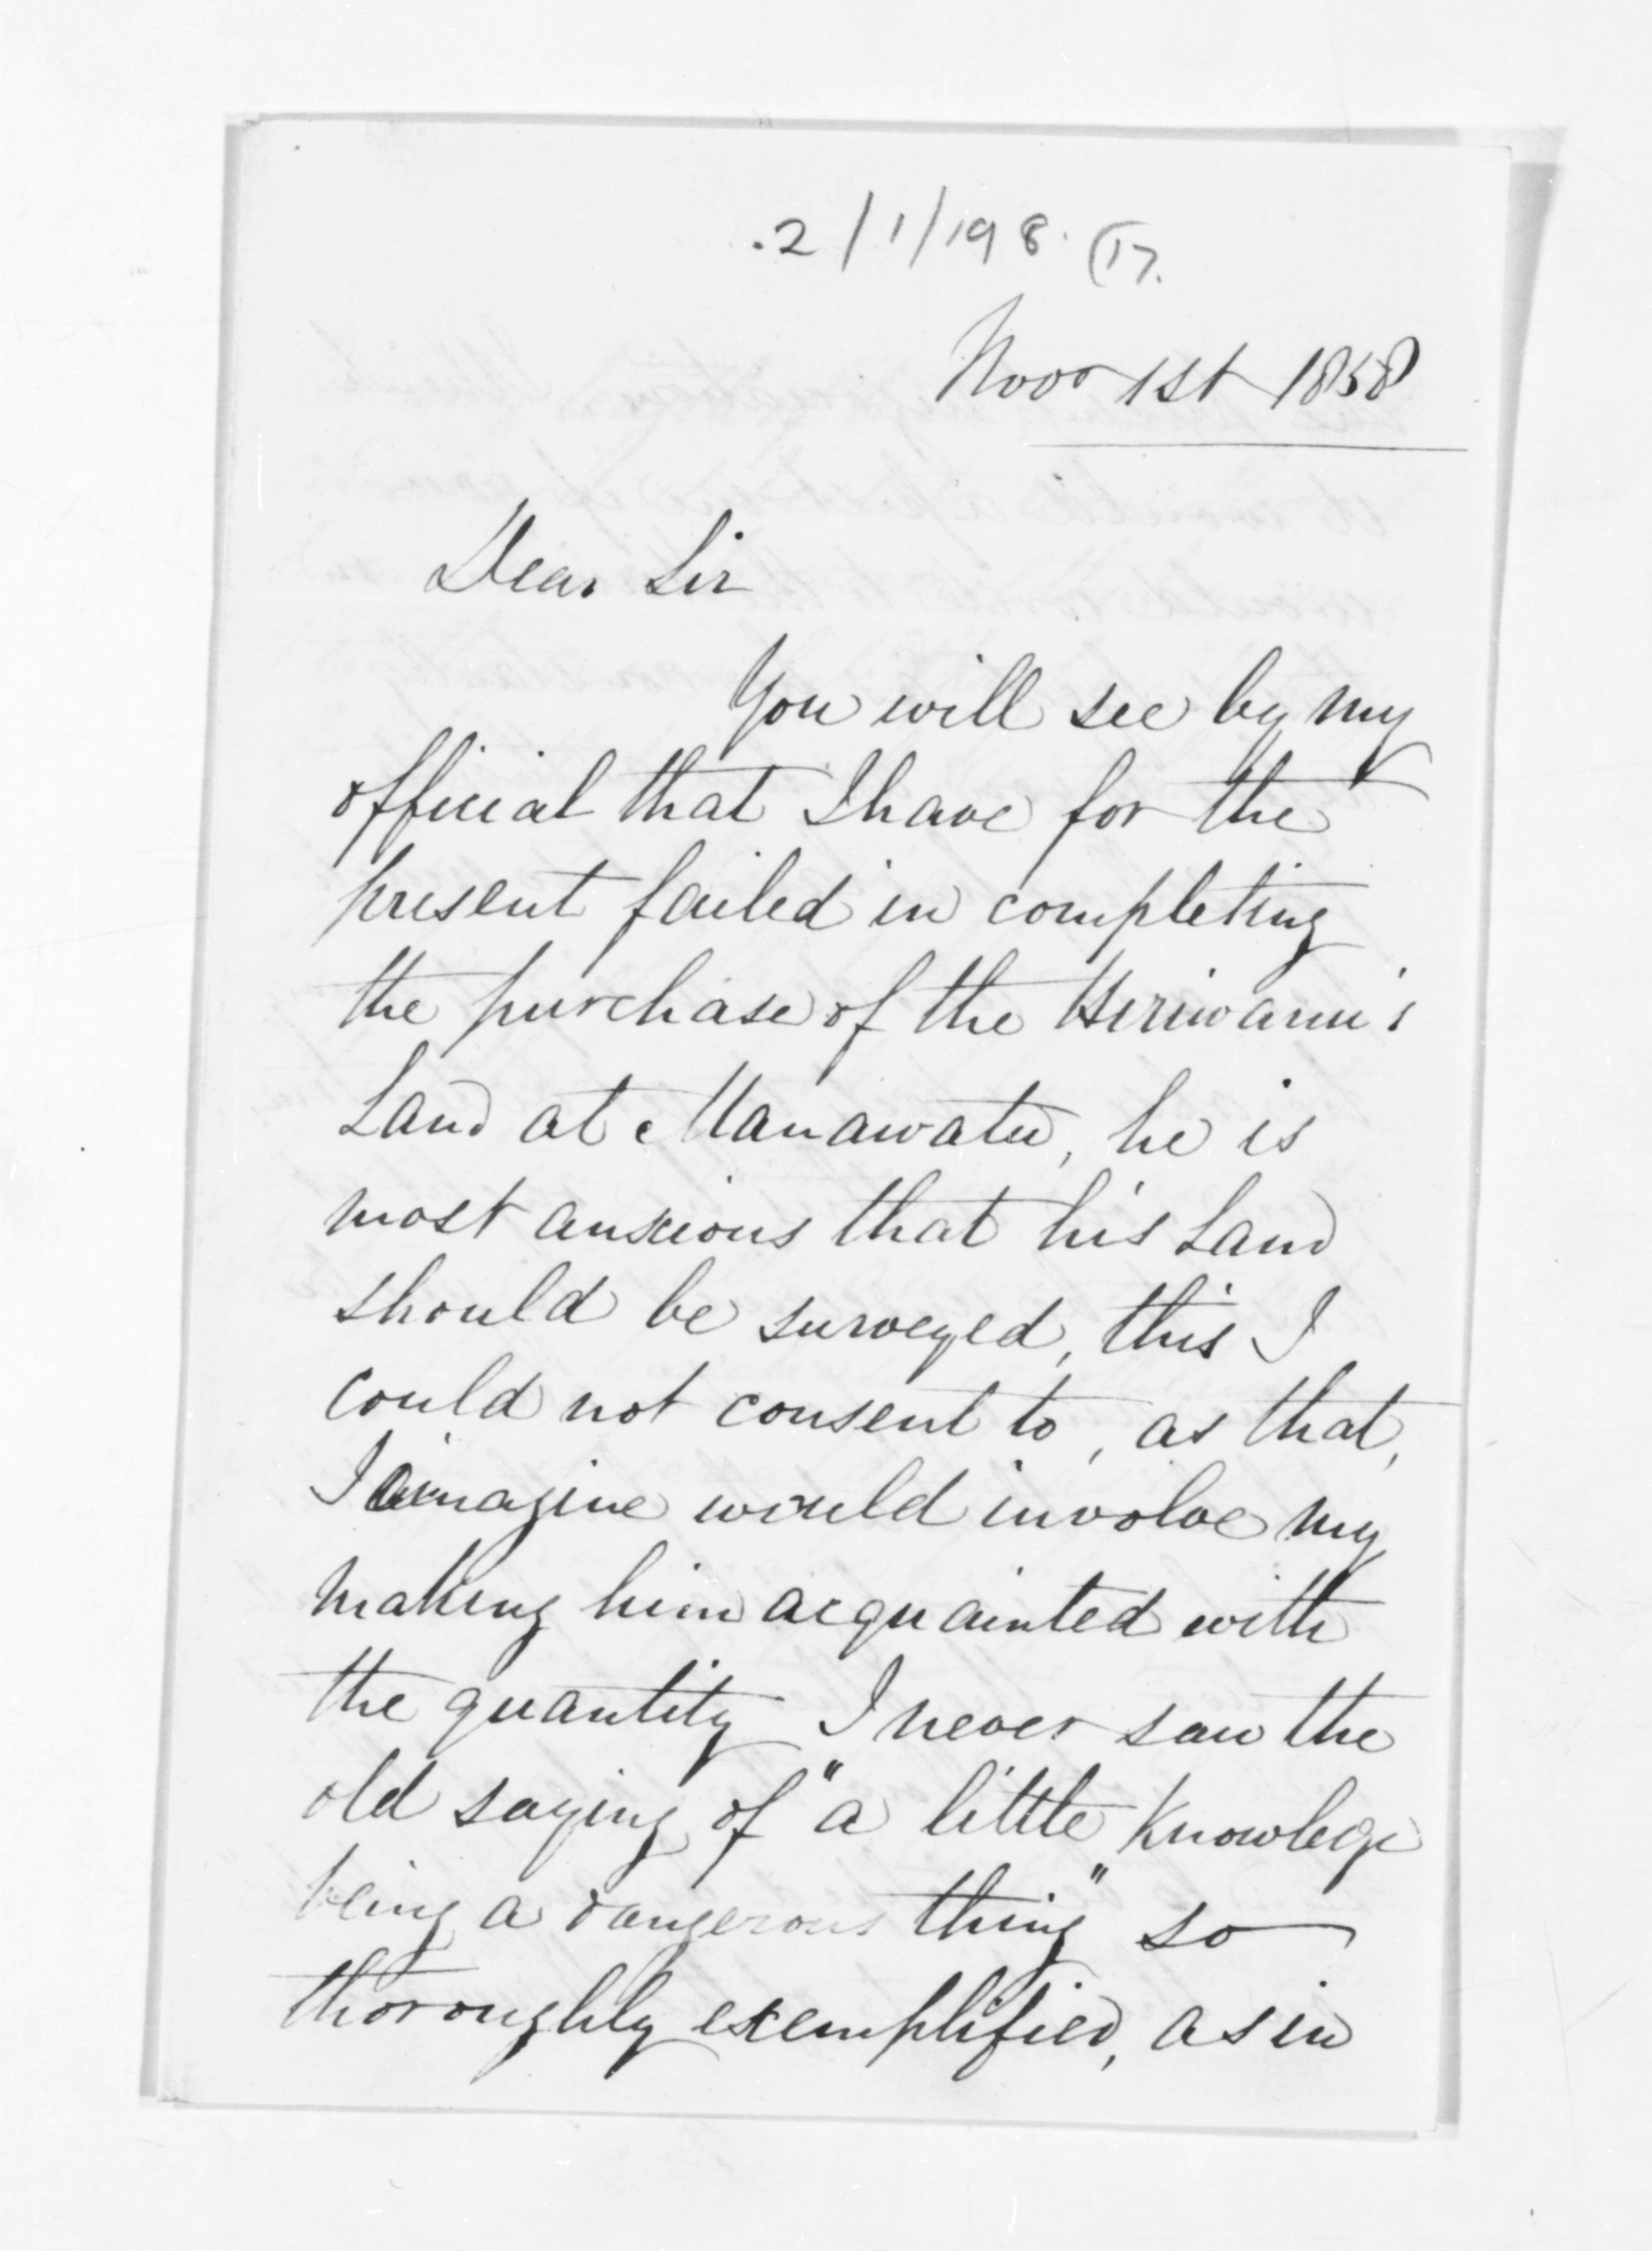 2/1/198 (17.
Novr 1st 1858
Dear Sir
You will see by my
official that I have for the
present failed in completing
the purchase of the Hiriwanu's
Land at Manawatu, he is
most anxious that his Land
should be surveyed, this I
could not consent to, as that,
I imagine would involve my
making him acquainted with
the quantity I never saw the
old saying of "a little Knowlege
being a dangerous thing" so
thoroughly exemplified, as in